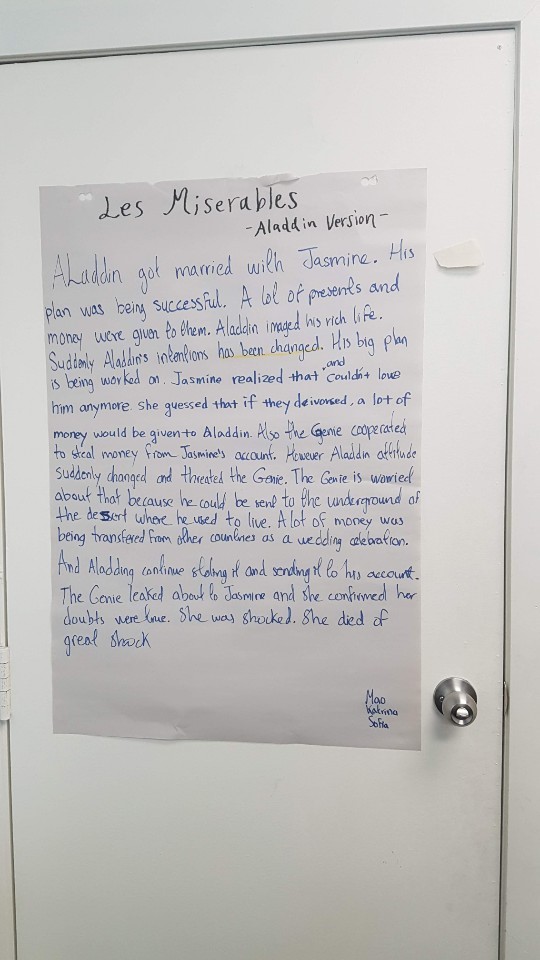 Les Miserables
- Aladdin Version -
ALaddin got married with Jasmine. His
plan was being successful. A lot of presents and
money were given to them. Aladdin imaged his rich life.
Suddenly Aladdin's intentions has been changed. His big plan
is being worked on. Jasmine realized that and couldn't love
him anymore. She guessed that if they deivorsed, a lot of
money would be given to Aladdin. Also the Genie cooperated
to steal money from Jasmine's account. However Aladdin attitude
suddenly changed and threated the Genie. The Genie is worried
about that because he could be send to the underground of
the dessert where he used to live. A lot of money was
being transfered from other countries as a wedding celebration.
And Aladding continue stoling it and sending it to his account.
The Genie leaked about to Jasmine and she confirmed her
doubts were true. She was shocked. She died of
great shock
Mao
Katrina
Sofia